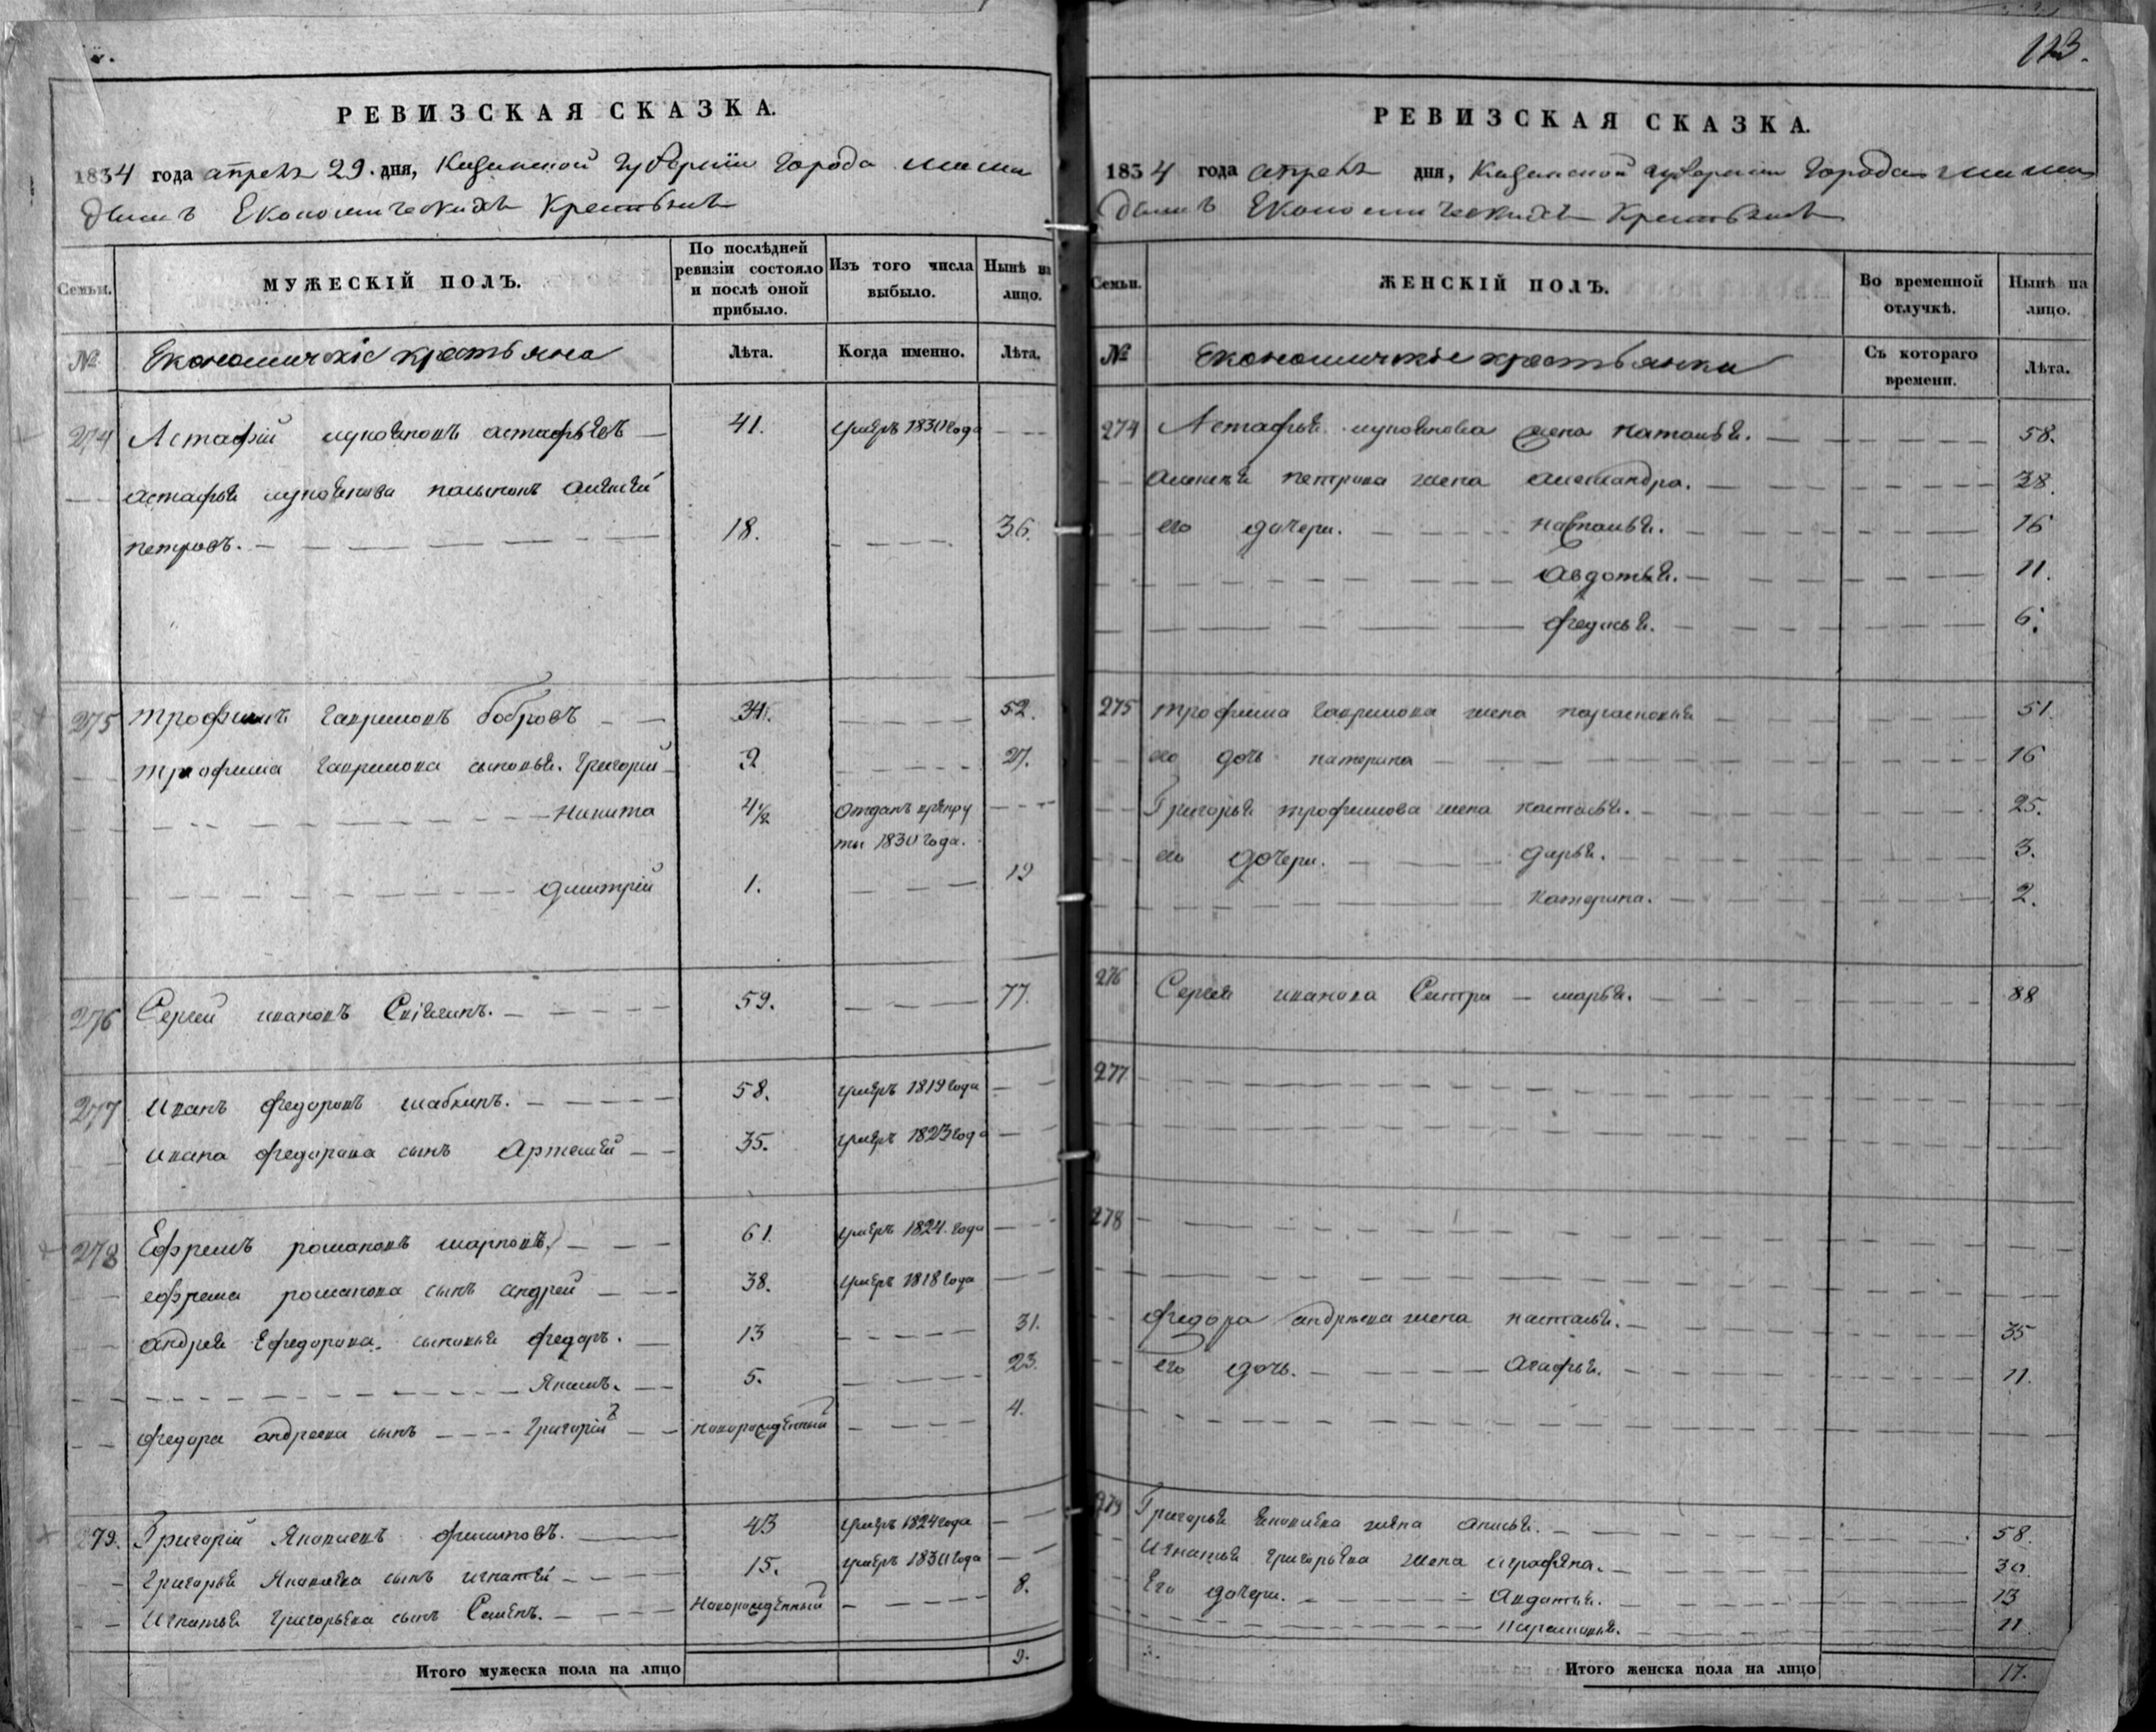 РЕВИЗСКАЯ СКАЗКА.
1834 года апреля 29. дня, Казанской губернии города мама
дышъ Економическихъ крестьянъ
Семьи.
МУЖЕСКІЙ ПОЛЪ.
По послѣдней ревизіи состояло и послѣ оной прибыло.
Изъ того числа выбыло.
Нынѣ на лицо.
№
Економическіе крестьяна
Лѣта.
Когда именно.
Лѣта.
274 Астафій астафьевъ — 41. умеръ 1830 года — —
астафья алексей
петровъ. — 18. — — 36.
275 трофимъ гавриловъ бобровъ — — 34. — — 52.
трофима гаврилова сыновья. григорій 9 — — 27.
— — Никита 4½ Отданъ врекру
ты 1830 года.
— — дмитрій 1. — — 19
276 Сергей ивановъ — — 59. — — 77.
277 иванъ федоровъ шабкинъ. — — 58. умеръ 1819 года — —
ивана федорова сынъ Артемей — — 35. умеръ 1823 года — —
278 Ефремъ романовъ — — 61. умеръ 1824. года — —
ефрема романова сынъ андрей — — 38. умеръ 1818 года — —
андрея сыновья федоръ. — 13 — — 31.
— — Якимъ. — 5. — — 23.
федора андреева сынъ — — григорій — — новорожденный — — 4.
279. Григорій филиповъ. — 43 умеръ 1824 года — —
григорья сынъ игнатей — — 15. умеръ 1830 года — —
игнатья григорьева сынъ Семенъ. — — новорожденный — — 8.
Итого мужеска пола на лицо 9.
123.
РЕВИЗСКАЯ СКАЗКА.
1834 года апреля дня, Казанской губернии города мама
дышъ Економическихъ крестьянъ
Семьи.
ЖЕНСКІЙ ПОЛЪ.
Во временной отлучкѣ.
Нынѣ на лицо.
№
Економическіе крестьянки
Съ котораго времени.
Лѣта.
274 Астафья жена наталья. — — 58.
алексея петрова жена александра. — — 38.
его дочери. — — — — 16
— — Авдотья. — — 11.
— — федосья. — — 6.
275 трофима гаврилова жена парасковья — — 51.
его дочь катерина — — 16
Григорья трофимова жена настасья. — — 25.
его дочери. — — дарья. — — 3.
— — катерина. — — 2.
276 Сергея иванова сестра — марья. — — 88
277 — —
278 — —
федора андреева жена настасья. — — 35
его дочь. — — агафья. — — 11.
279 Григорья жена анисья. — — 58.
игнатья григорьева жена аграфена. — — 30
Его дочери. — — авдотья. — — 13
— — парасковья. — — 11
Итого женска пола на лицо 17.